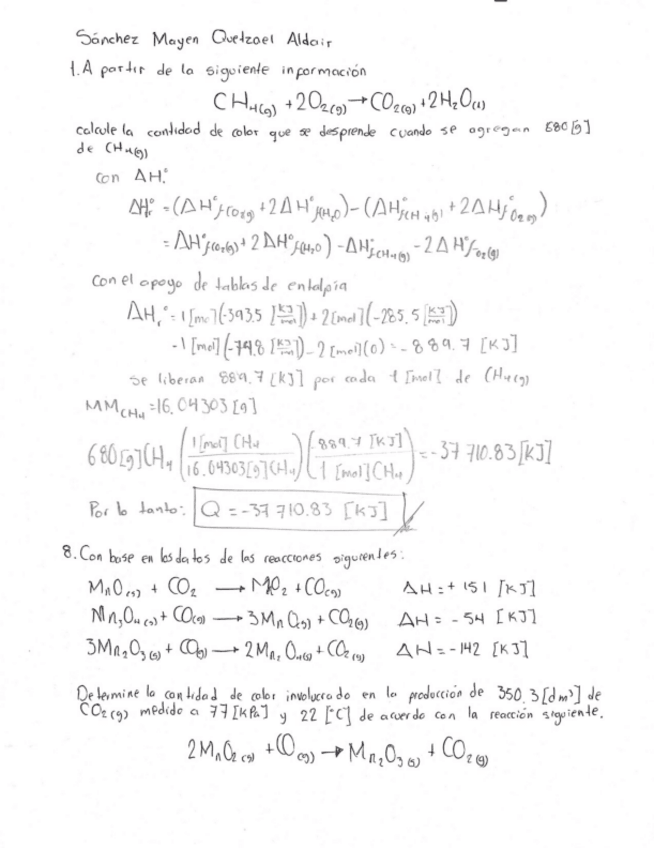 Sánchez Mayen Quetzael Aldair
1. A partir de la siguiente información
CH₄(g) + 2O₂(g) → CO₂(g) + 2H₂O(l)
calcule la cantidad de calor que se desprende cuando se agregan 680 [g]
de CH₄(g)
con ΔH°r
ΔH°r = (ΔH°f CO₂(g) + 2ΔH°f(H₂O)) - (ΔH°f(CH₄(g)) + 2ΔHf°O₂(g))
= ΔH°f(CO₂(g)) + 2ΔH°f(H₂O)) - ΔH°f CH₄(g) - 2ΔH°f O₂(g)
Con el apoyo de tablas de entalpía
ΔHr° = 1[mol](-393.5 [KJ/mol]) + 2[mol](-285.5 [KJ/mol])
-1[mol](-74.8 [KJ/mol]) - 2[mol](0) = -889.7 [KJ]
se liberan 889.7 [KJ] por cada 1 [mol] de CH₄(g)
MM CH₄ = 16.04303[g]
680[g]CH₄ (1[mol] CH₄ / 16.04303[g]CH₄) (889.7 [KJ] / 1 [mol]CH₄) = -37 710.83[KJ]
Por lo tanto: Q = -37 710.83 [KJ]
8. Con base en los datos de las reacciones siguientes:
MnO(s) + CO₂ → MnO₂ + CO(g) ΔH = + 151 [KJ]
Mn₃O₄(s) + CO(g) → 3MnO(s) + CO₂(g) ΔH = - 54 [KJ]
3Mn₂O₃(s) + CO(g) → 2Mn₃O₄(s) + CO₂(g) ΔH = -142 [KJ]
Determine la cantidad de calor involucrado en la producción de 350.3[dm³] de
CO₂(g) medido a 77[kPa] y 22 [°C] de acuerdo con la reacción siguiente.
2MnO₂(s) + CO(g) → Mn₂O₃(s) + CO₂(g)